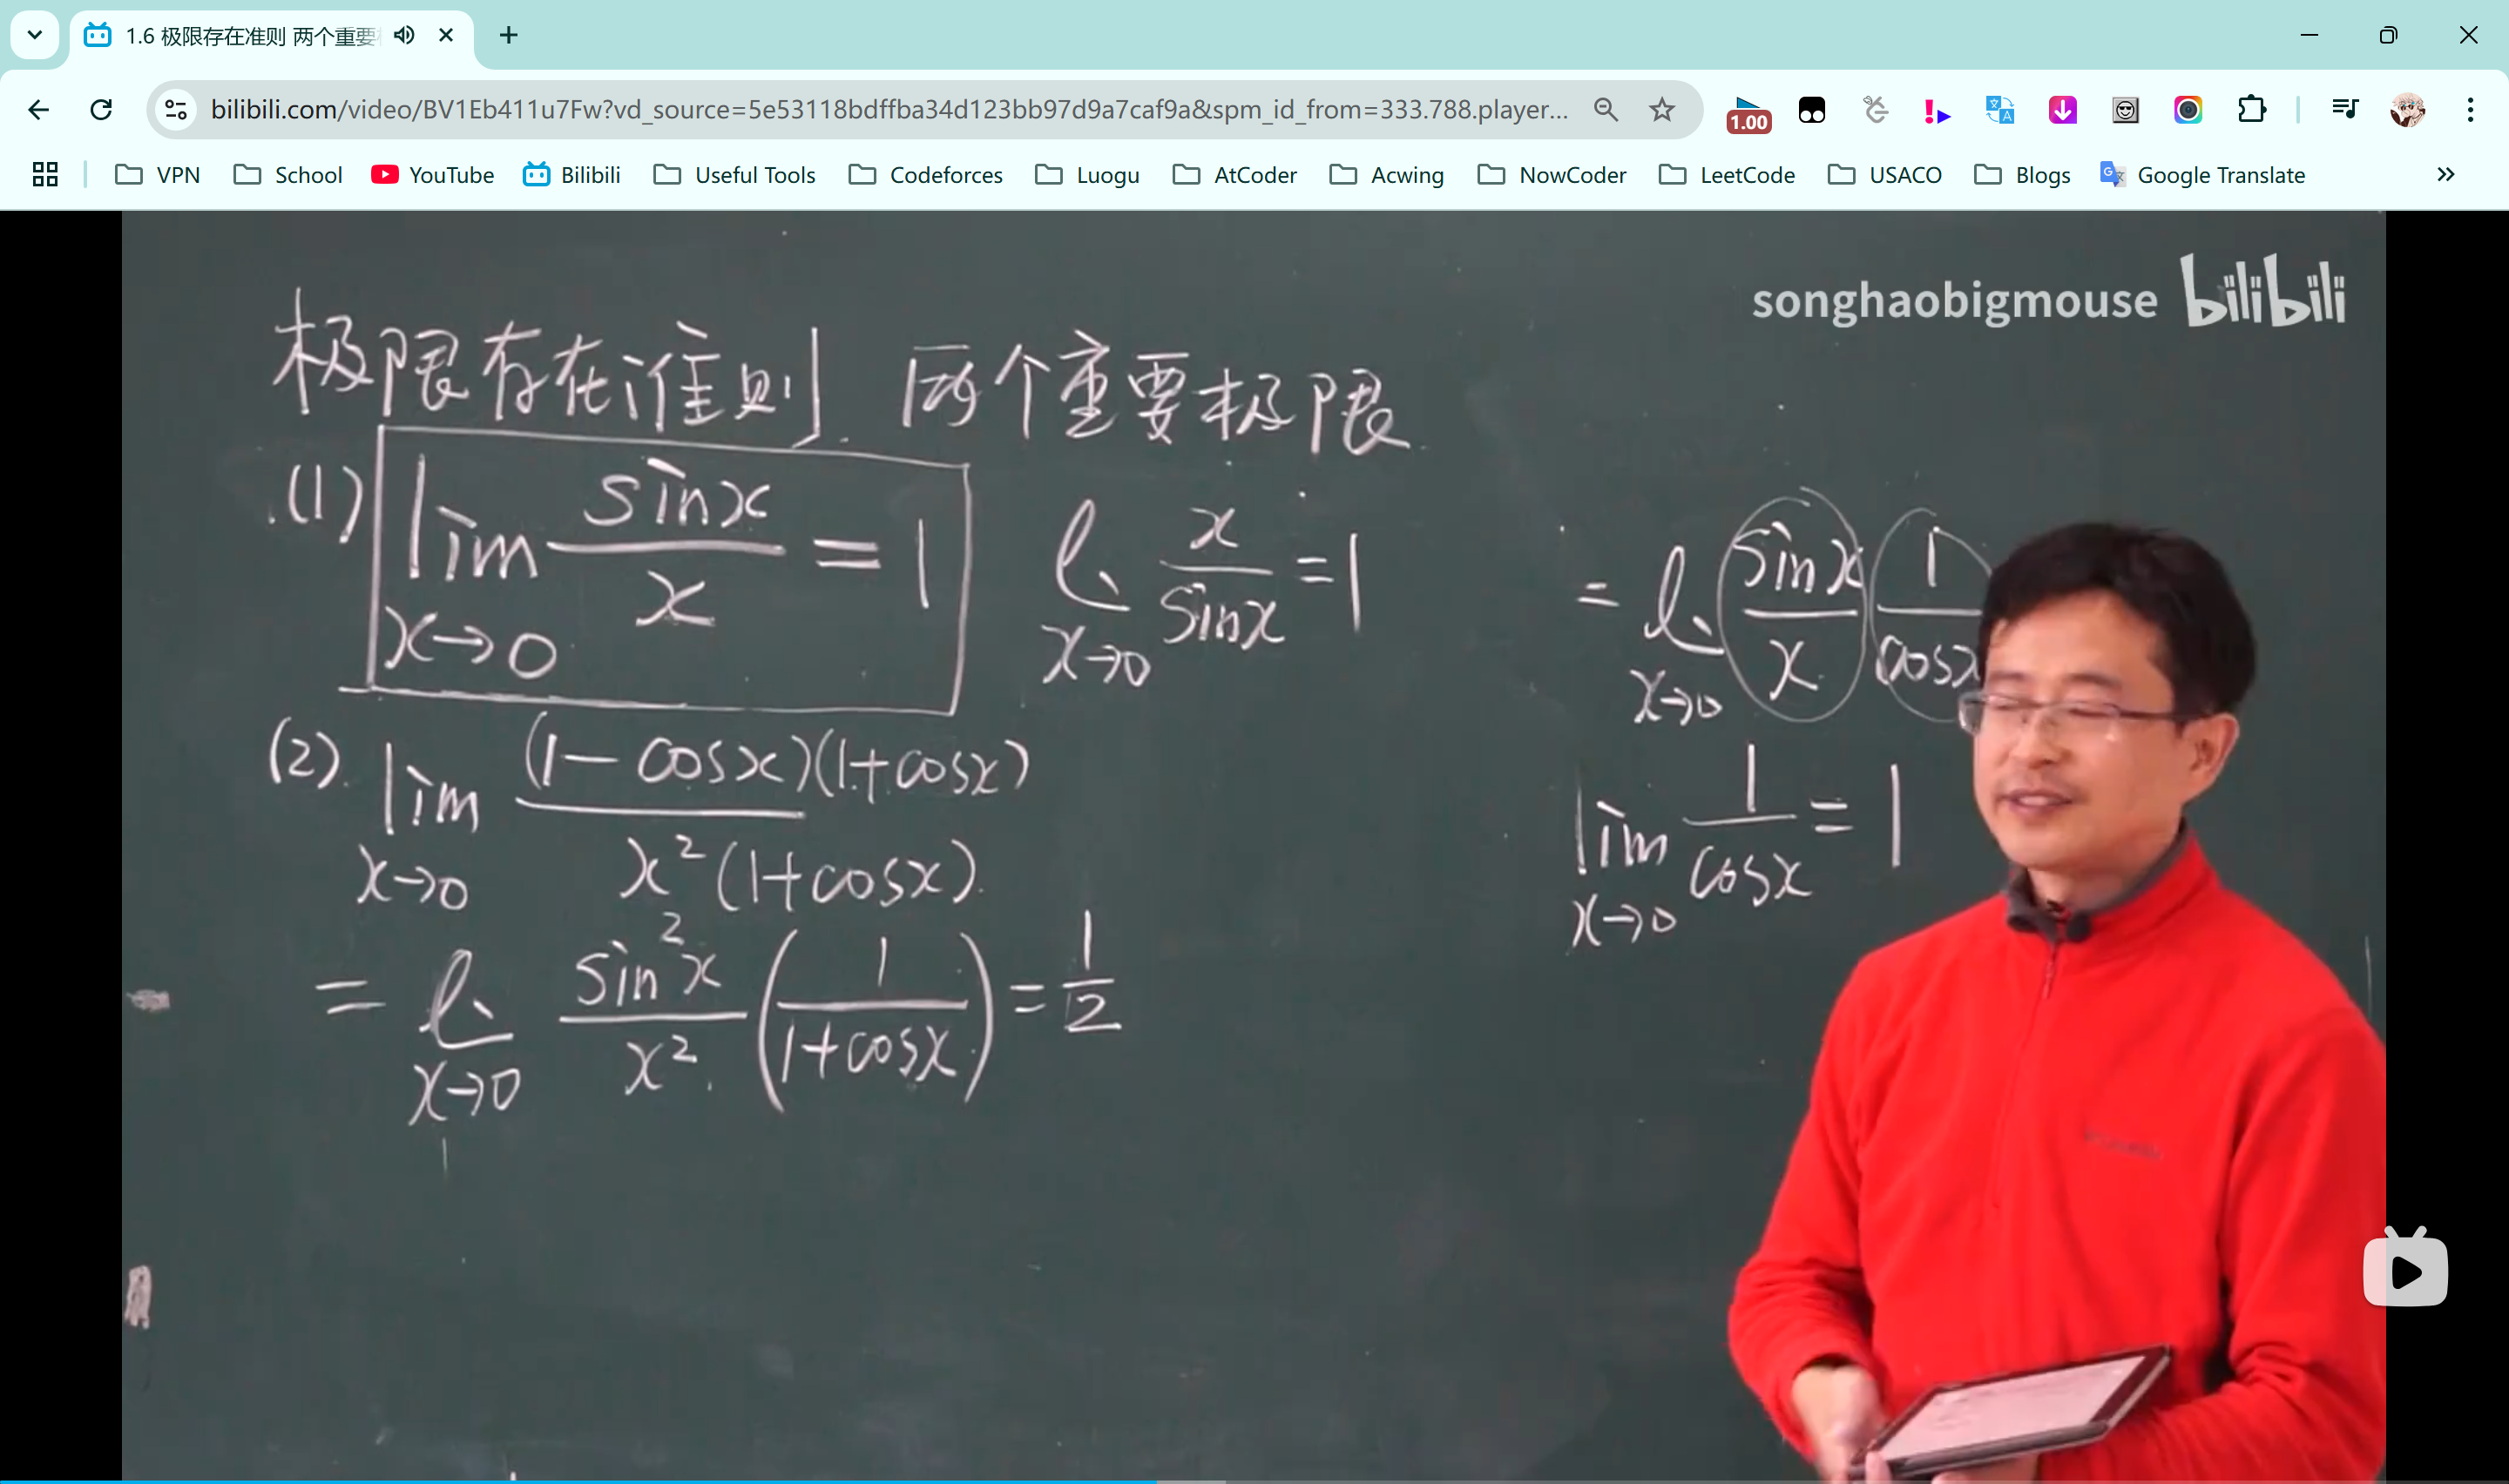 1.6 极限存在准则 两个重要
bilibili.com/video/BV1Eb411u7Fw?vd_source=5e53118bdffba34d123bb97d9a7caf9a&spm_id_from=333.788.player...
1.00
VPN School YouTube Bilibili Useful Tools Codeforces Luogu AtCoder Acwing NowCoder LeetCode USACO Blogs Google Translate
songhaobigmouse bilibili
极限存在准则 两个重要极限
(1) lim x→0 sinx/x = 1 l. x→0 x/sinx = 1
= l. x→0 sinx/x 1/cosx
(2). lim x→0 (1-cosx)(1+cosx)/x²(1+cosx)
lim x→0 1/cosx = 1
= l. x→0 sin²x/x² (1/(1+cosx)) = 1/2